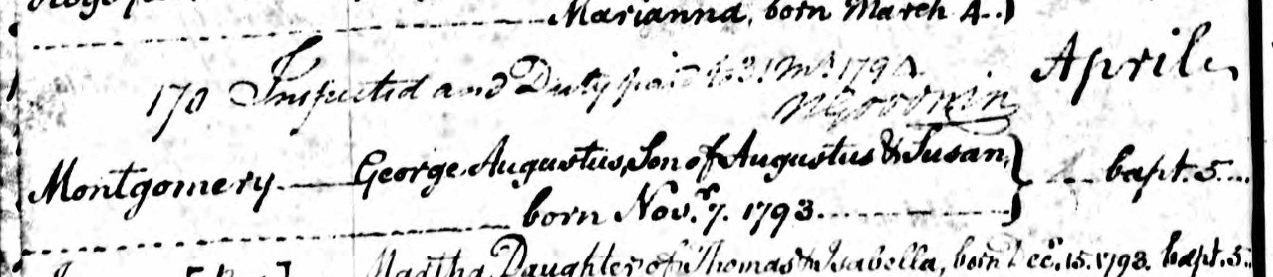 Marianna, born March 4..)
170 Inspected and Duty paid to 31 Mch 1794 April
Montgomery — George Augustus, Son of Augustus & Susan, } bapt. 5...
born Novr. 7. 1793
Martha, Daughter of Thomas & Isabella, born Decr. 15. 1793. bapt. 5..